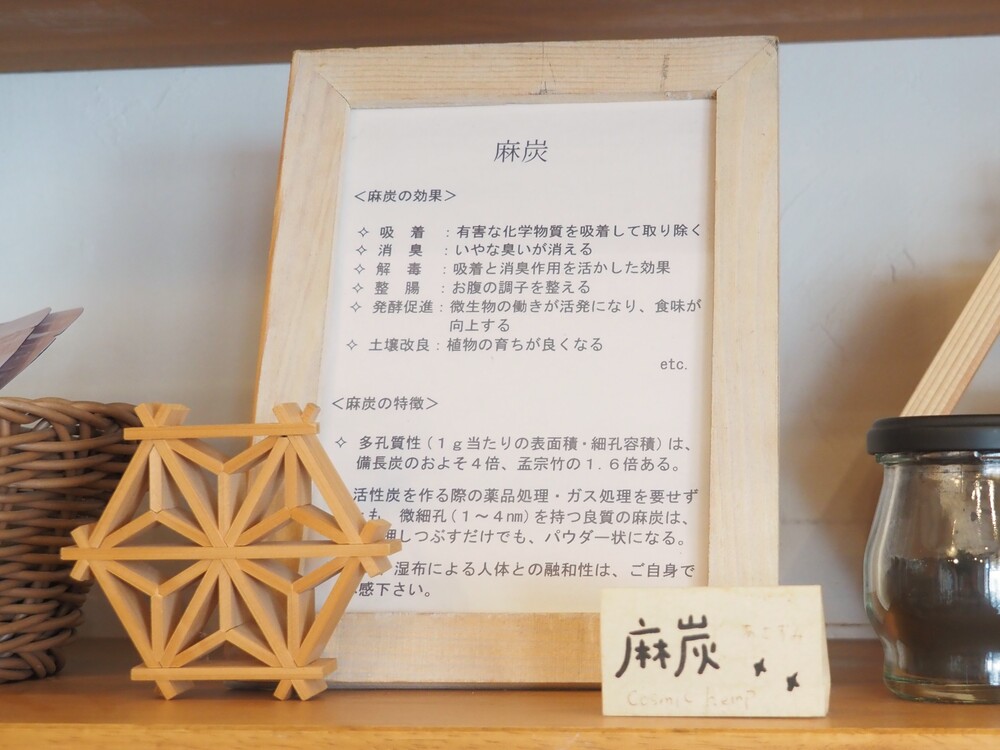 麻炭
<麻炭の効果>
✧ 吸 着 ：有害な化学物質を吸着して取り除く
✧ 消 臭 ：いやな臭いが消える
✧ 解 毒 ：吸着と消臭作用を活かした効果
✧ 整 腸 ：お腹の調子を整える
✧ 発酵促進：微生物の働きが活発になり、食味が
向上する
✧ 土壌改良：植物の育ちが良くなる
etc.
<麻炭の特徴>
✧ 多孔質性（１ｇ当たりの表面積・細孔容積）は、
備長炭のおよそ４倍、孟宗竹の１.６倍ある。
活性炭を作る際の薬品処理・ガス処理を要せず
も、微細孔（１～４nm）を持つ良質の麻炭は、
押しつぶすだけでも、パウダー状になる。
湿布による人体との融和性は、ご自身で
感下さい。
麻炭 あさすみ
Cosmic hemp